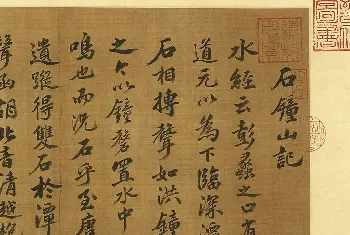 石鐘山記
水經云彭蠡之口有
道元以為下臨深潭
石相搏聲如洪鐘
之今以鐘磬置水中
鳴也而況石乎至唐
遺蹤得雙石於潭
聲函胡北音清越